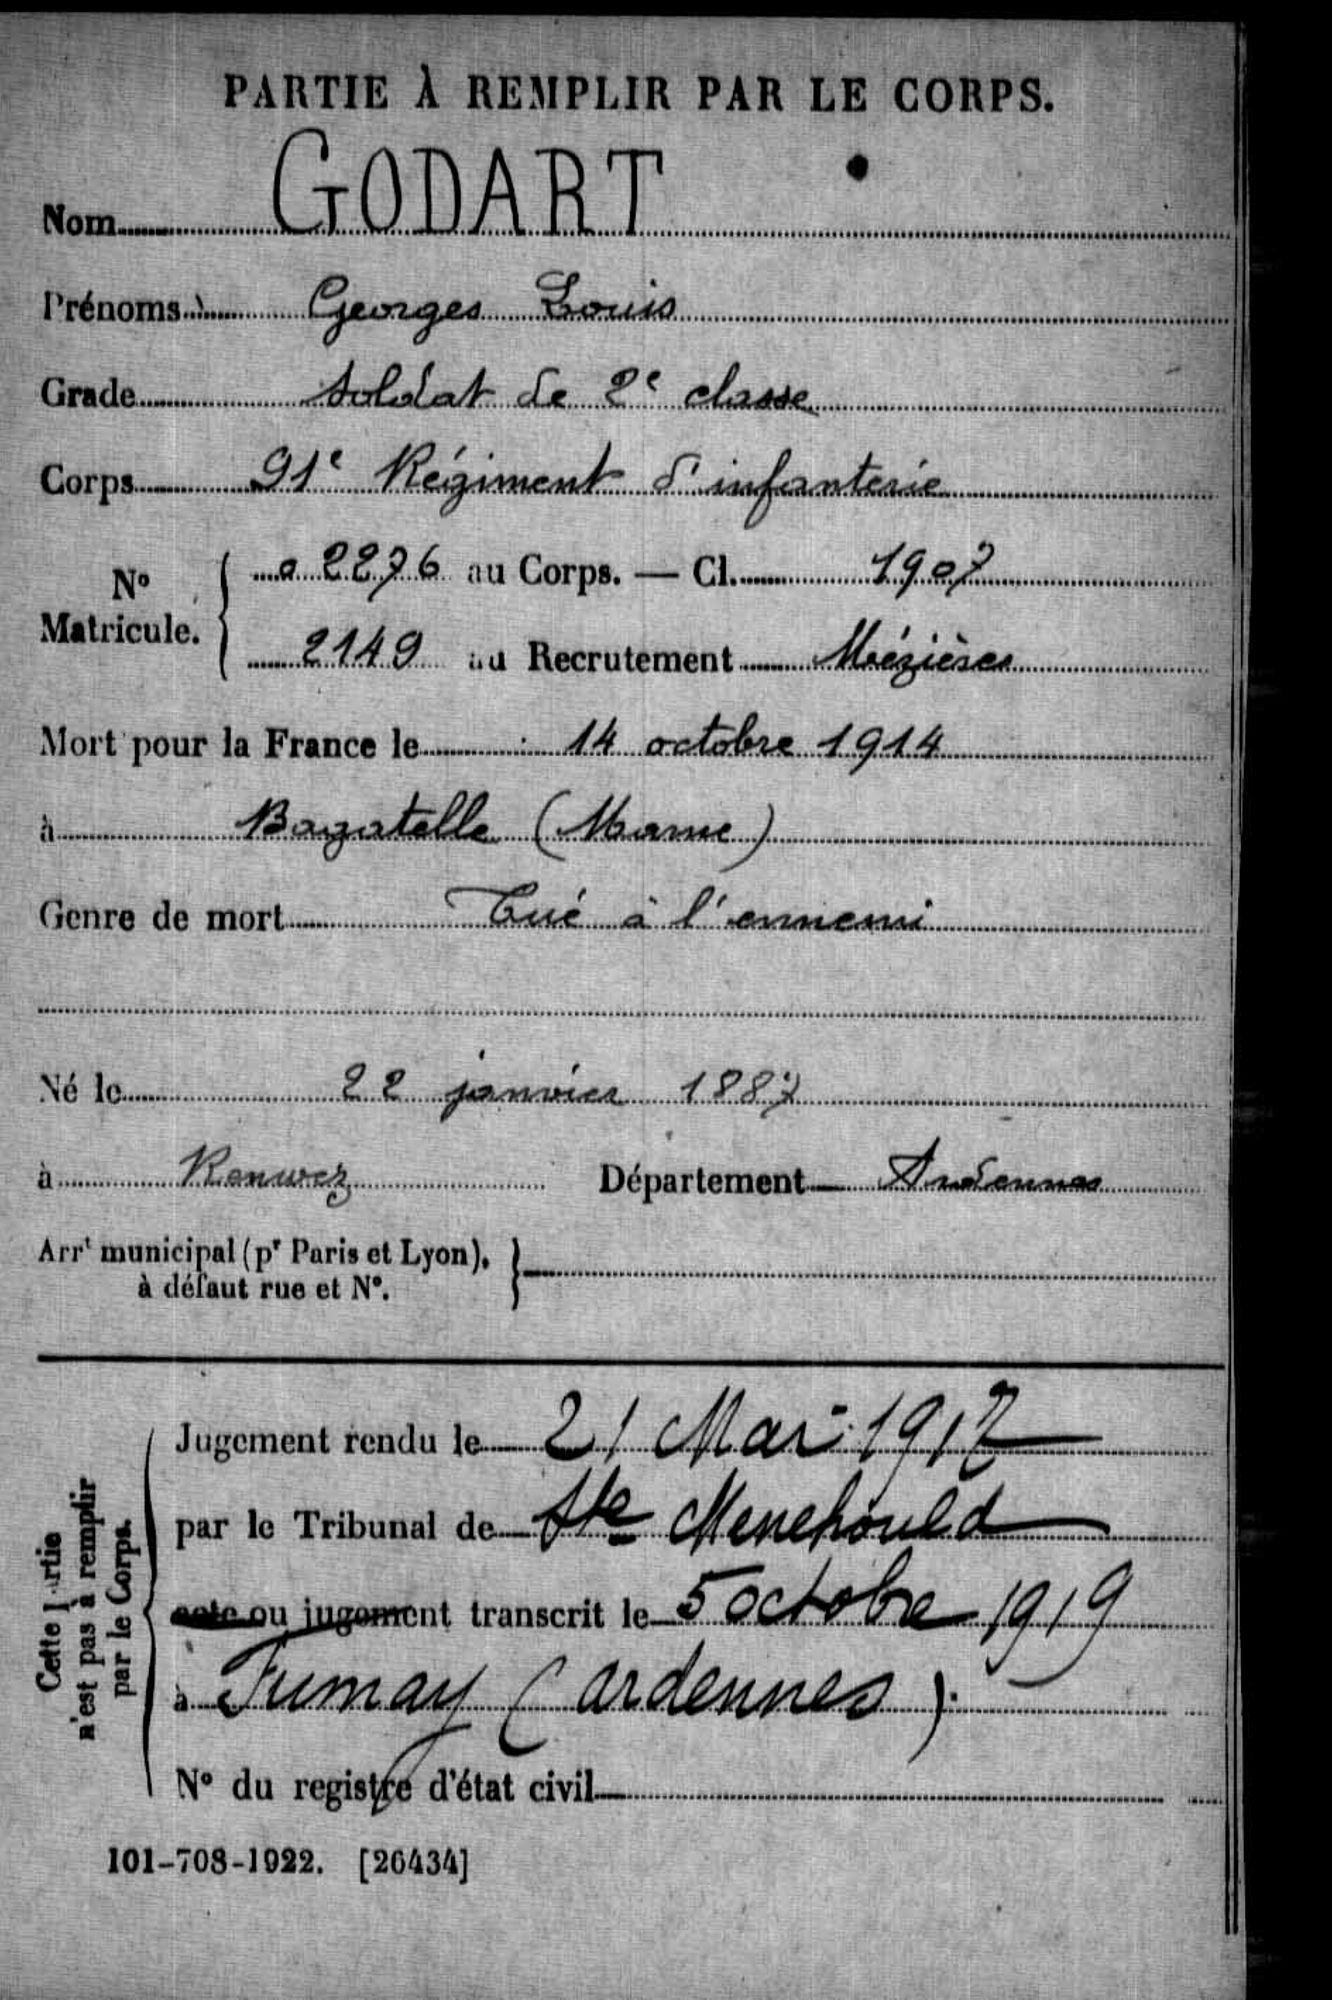 PARTIE À REMPLIR PAR LE CORPS.
Nom GODART
Prénoms Georges Louis
Grade Soldat de 2e classe
Corps 91e Régiment d'infanterie
No Matricule. { o 2276 au Corps. — Cl. 1907
2149 au Recrutement Mézières
Mort pour la France le 14 octobre 1914
à Bagatelle (Marne)
Genre de mort Tué à l'ennemi
Né le 22 janvier 1887
à Renwez Département Ardennes
Arrt municipal (pr Paris et Lyon), }
à défaut rue et No.
Cette partie n'est pas à remplir par le Corps.
Jugement rendu le 21 Mai 1917
par le Tribunal de Ste Menehould
acte ou jugement transcrit le 5 octobre 1919
à Fumay (Ardennes).
No du registre d'état civil
101-708-1922. [26434]